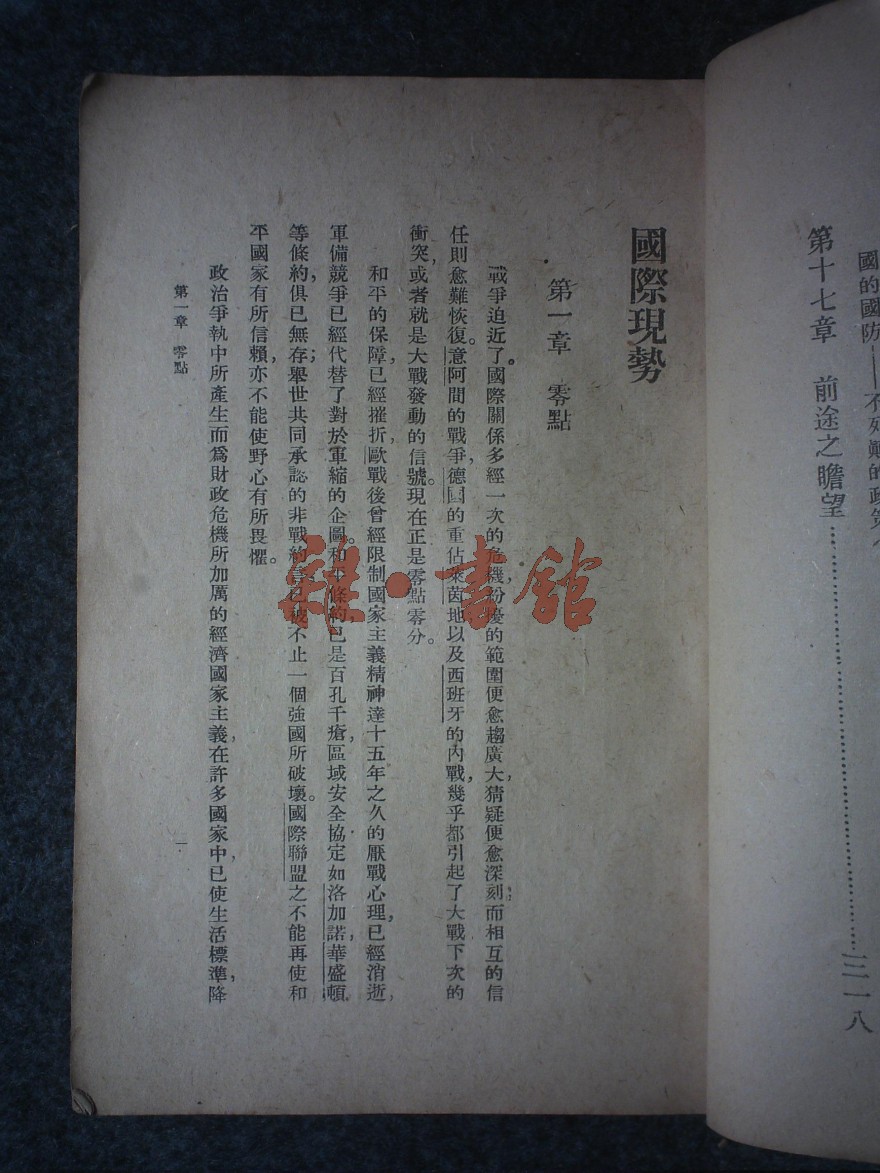 國的國防——不列顛的政策
第十七章　前途之瞻望……三一八
國際現勢
第一章　零點
戰爭迫近了。國際關係多經一次的危機，紛擾的範圍便愈趨廣大，猜疑便愈深刻，而相互的信
任則愈難恢復。意阿間的戰爭，德國的重佔萊茵地以及西班牙的內戰，幾乎都引起了大戰下次的
衝突，或者就是大戰發動的信號。現在正是零點零分。
和平的保障已經摧折，歐戰後曾經限制國家主義精神達十五年之久的厭戰心理，已經消逝，
軍備競爭已經代替了對於軍縮的企圖。和平條約已是百孔千瘡，區域安全協定如洛加諾，華盛頓
等條約，俱已無存；舉世共同承認的非戰約言，已被不止一個強國所破壞。國際聯盟之不能再使和
平國家有所信賴，亦不能使野心有所畏懼。
政治爭執中所產生而爲財政危機所加厲的經濟國家主義，在許多國家中，已使生活標準，降
第一章　零點
一
雜·書館